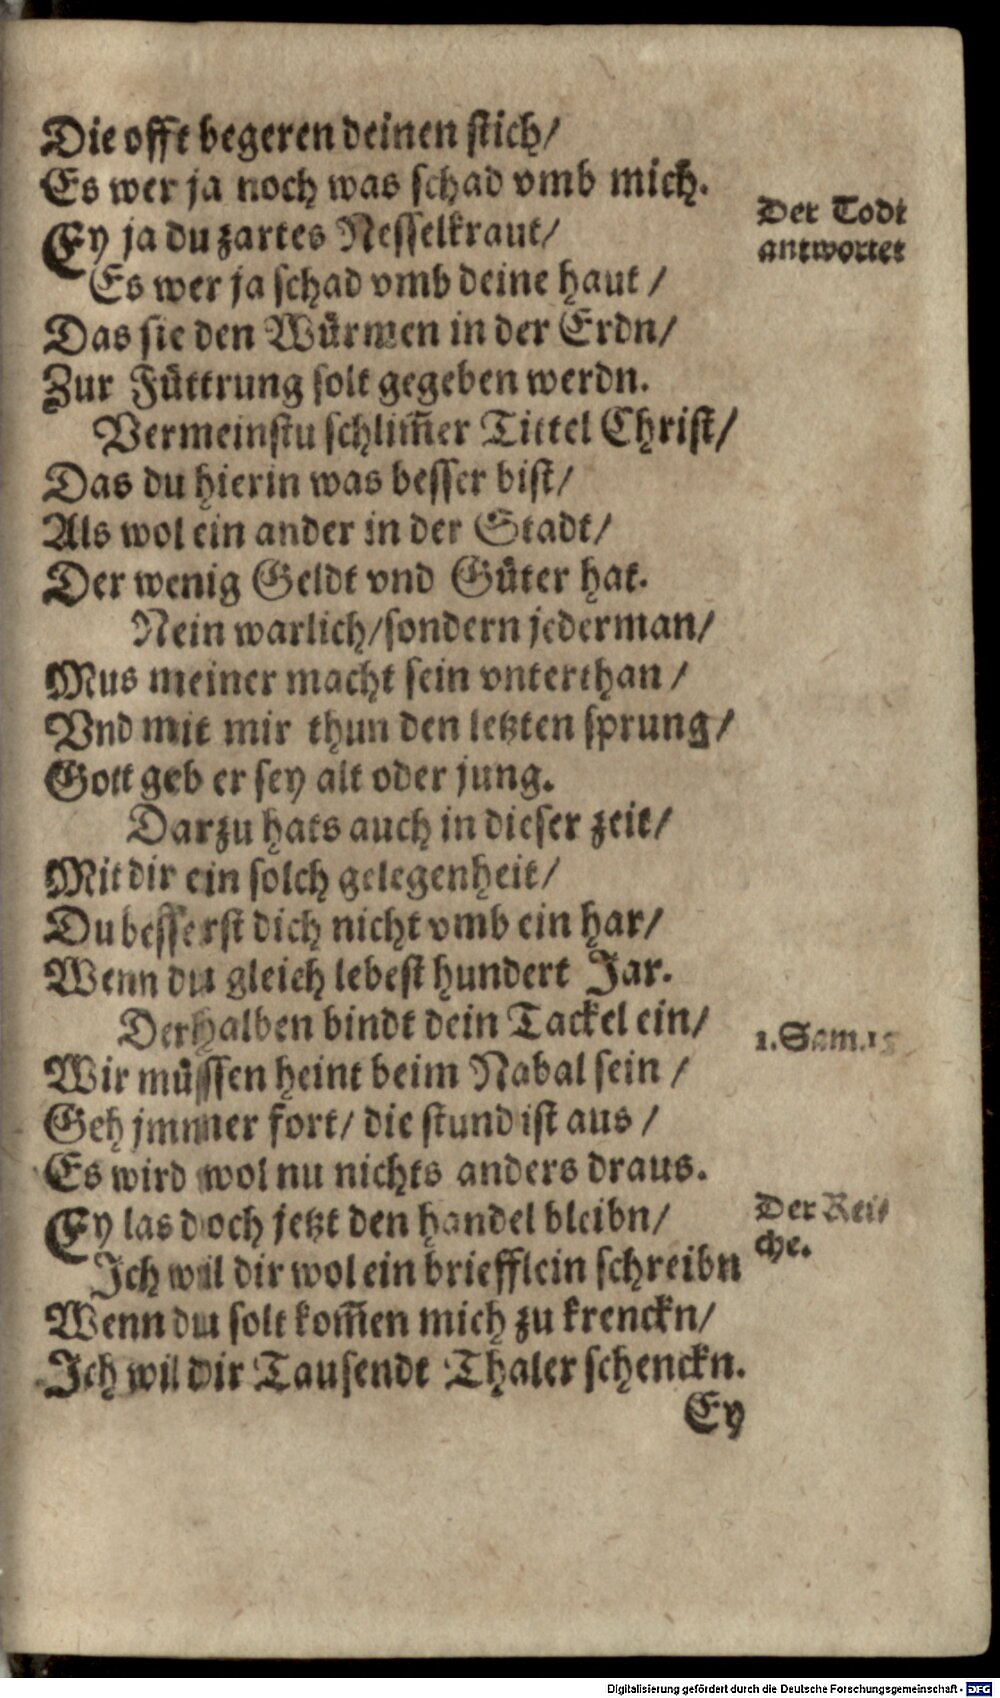 Die offt begeren deinen stich/
Es wer ja noch was schad vmb mich.
Der Todt
antwortet
Ey ja du zartes Nesselkraut/
Es wer ja schad vmb deine haut /
Das sie den Würmen in der Erdn/
Zur Füttrung solt gegeben werdn.
Vermeinstu schlim̃er Tittel Christ/
Das du hierin was besser bist/
Als wol ein ander in der Stadt/
Der wenig Geldt vnd Güter hat.
Nein warlich/sondern jederman/
Mus meiner macht sein vnterthan /
Vnd mit mir thun den letzten sprung/
Gott geb er sey alt oder jung.
Darzu hats auch in dieser zeit/
Mit dir ein solch gelegenheit/
Du besserst dich nicht vmb ein har/
Wenn du gleich lebest hundert Jar.
Derhalben bindt dein Tackel ein/
1.Sam.
Wir müssen heint beim Nabal sein /
Geh jmmer fort/ die stund ist aus /
Es wird wol nu nichts anders draus.
Der Rei-
che.
Ey las doch jetzt den handel bleibn/
Ich wil dir wol ein briefflein schreibn
Wenn du solt kom̃en mich zu krenckn/
Ich wil dir Tausendt Thaler schenckn.
Ey
Digitalisierung gefördert durch die Deutsche Forschungsgemeinschaft - DFG